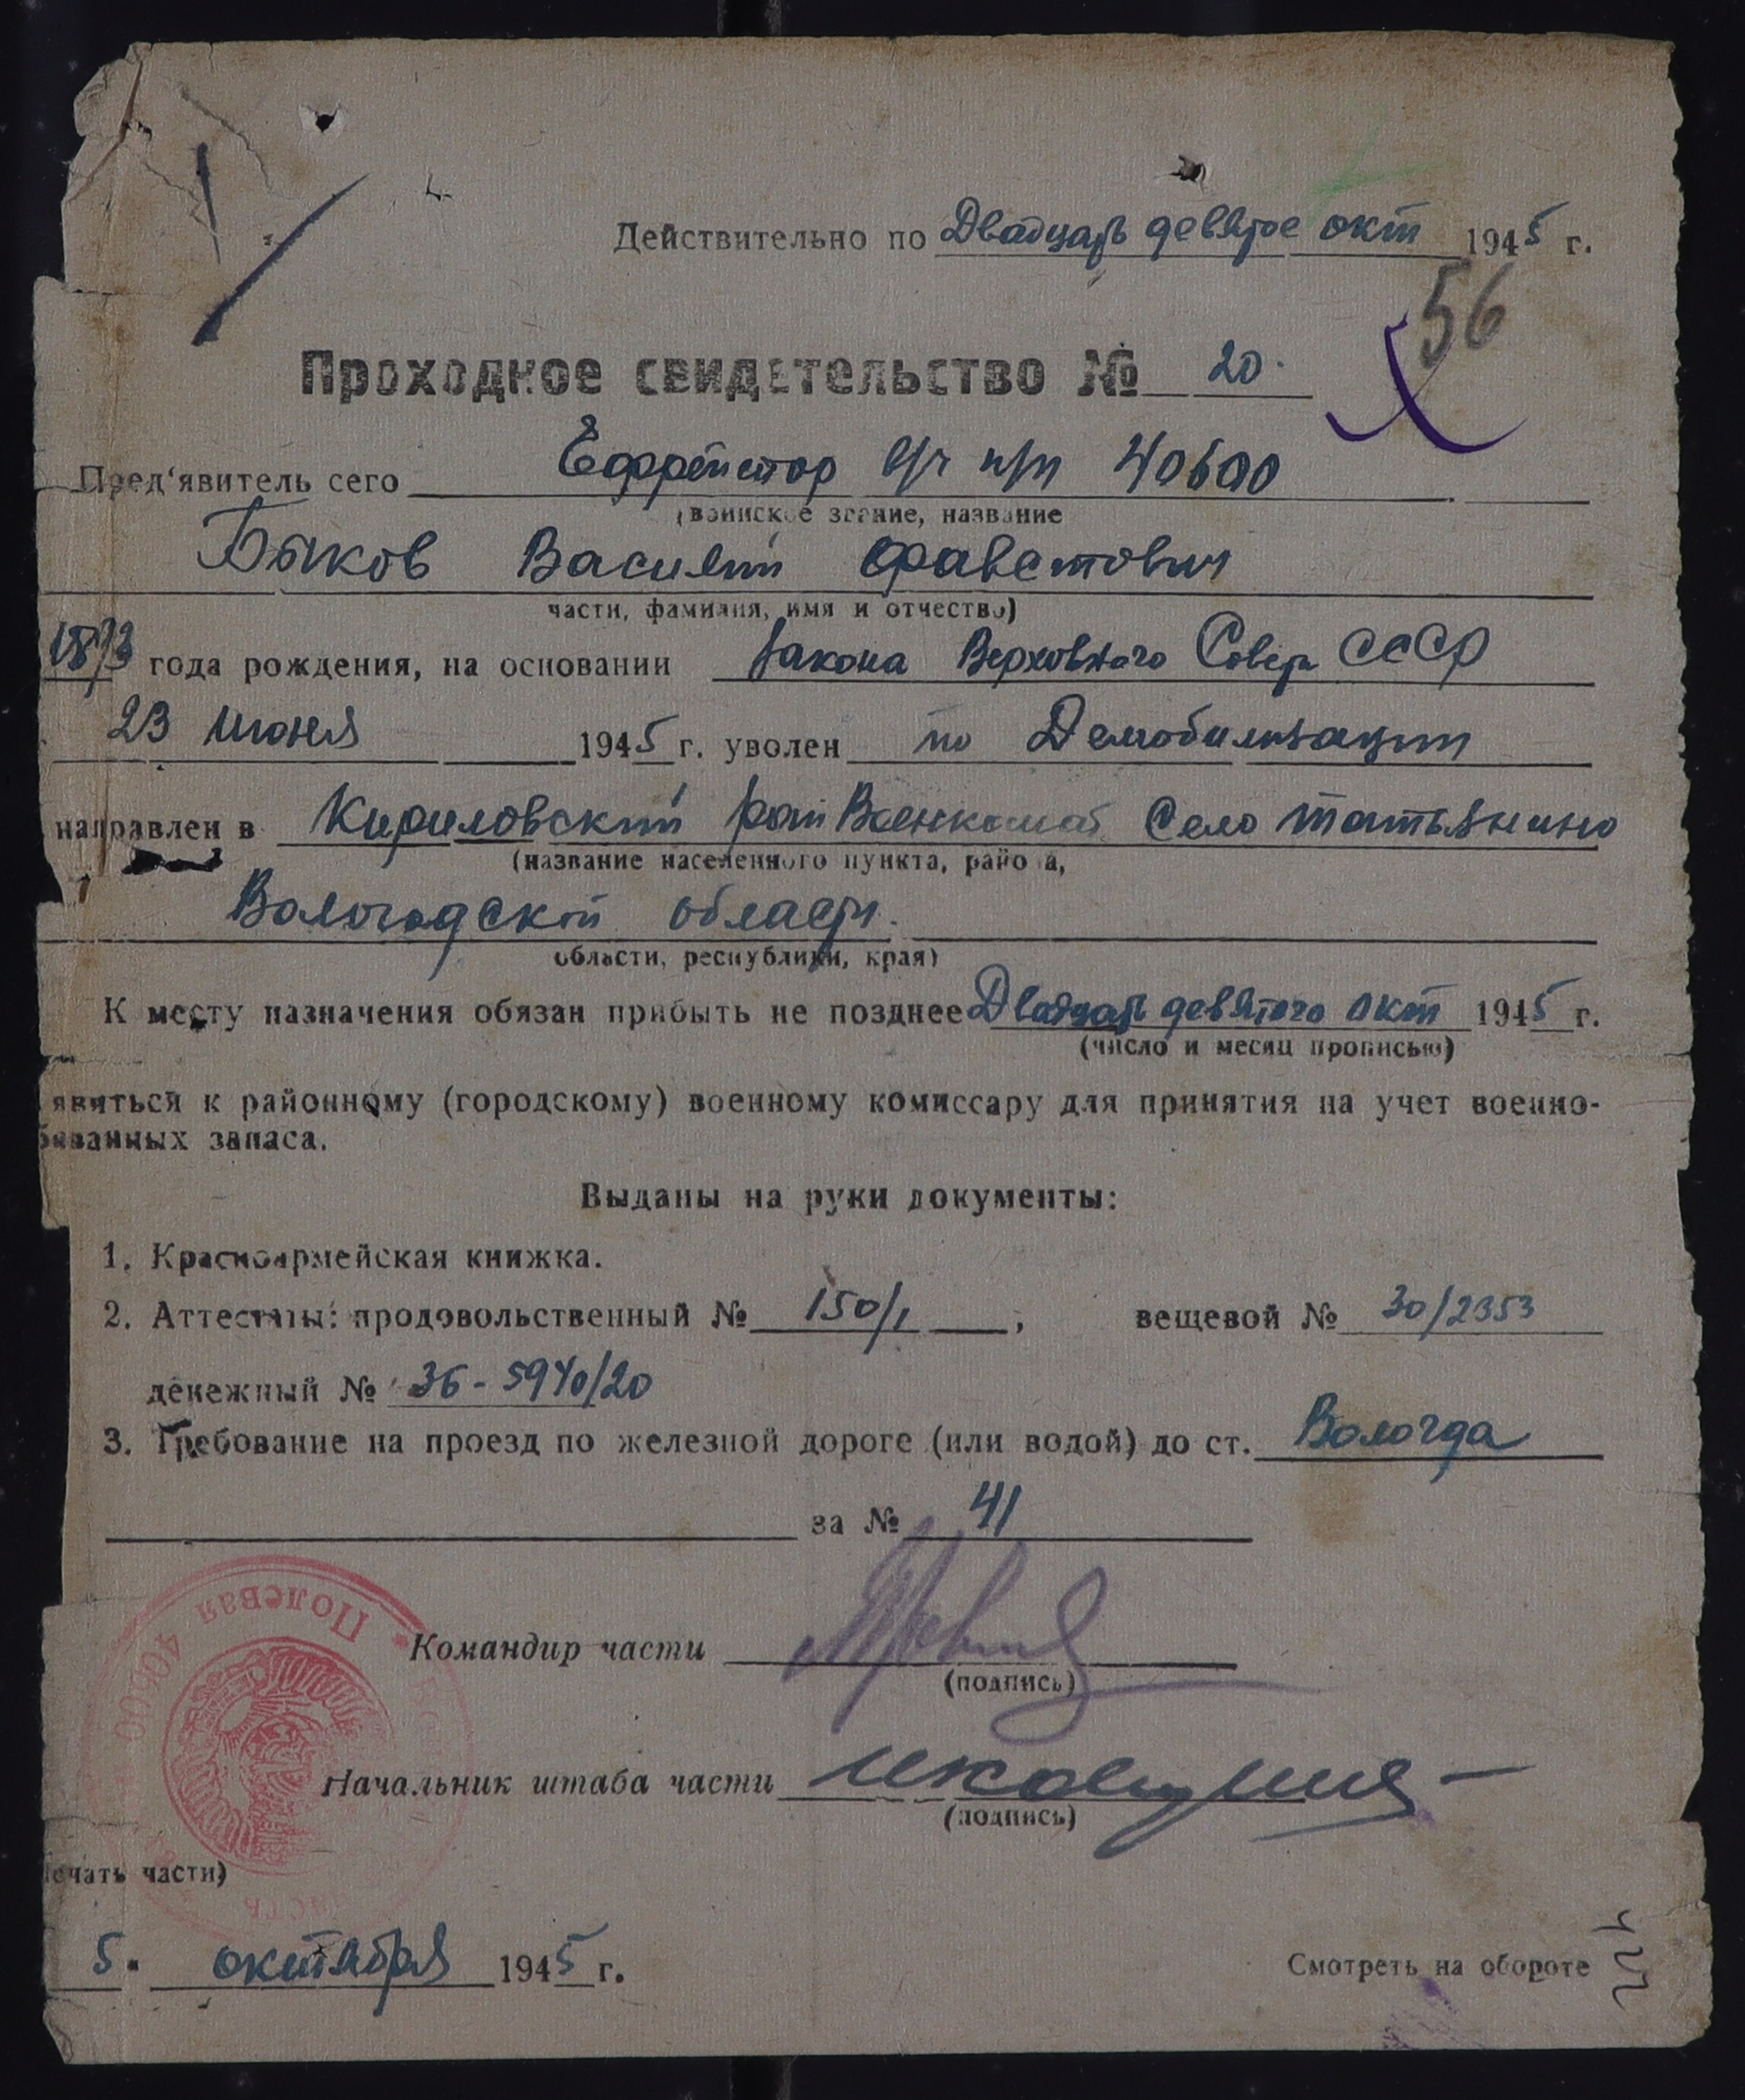 Действительно по Двадцать девятое окт 1945 г.
56
Проходное свидетельство № 20.
Пред'явитель сего Ефрейтор в/ч п/п 40600
(воинское звание, название
Быков Василий Фавстович
части, фамилия, имя и отчество)
года рождения, на основании Закона Верховного Совета СССР
23 июня 1945 г. уволен по Демобилизации
направлен в Кириловский рай Военкомат Село Татьянино
(название населенного пункта, района,
Вологодской области.
области, республики, края)
К месту назначения обязан прибыть не позднее Двадцать девятого окт 1945 г.
(число и месяц прописью)
явиться к районному (городскому) военному комиссару для принятия на учет военно-
бязанных запаса.
Выданы на руки документы:
1. Красноармейская книжка.
2. Аттестаты: продовольственный № 150/1 , вещевой № 30/2353
денежный № 36-5940/20
3. Требование на проезд по железной дороге (или водой) до ст. Вологда
за № 41
Полевая
Командир части
(подпись)
Начальник штаба части
(подпись)
ечать части)
часть
5. октября 1945 г.
Смотреть на обороте